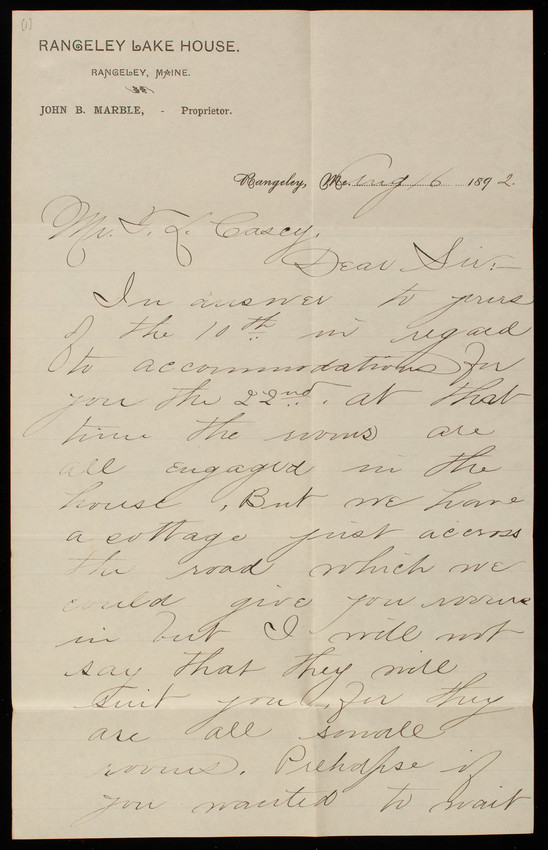 (1)
RANGELEY LAKE HOUSE.
RANGELEY, MAINE.
JOHN B. MARBLE, - Proprietor.
Rangeley, Me. Aug 16 1892.
Mr. T. L. Casey,
Dear Sir:-
In answer to yours
of the 10th in regard
to accommodations for
you the 22nd. at that
time the rooms are
all engaged in the
house, But we have
a cottage just accross
the road which we
could give you rooms
in but I will not
say that they will
suit you, for they
are all small
rooms. Prehapse if
you wanted to wait